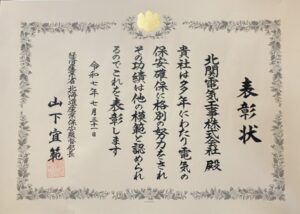 表彰状
北関電気工事株式会社 殿
貴社は多年にわたり電気の
保安確保に格別の努力をされ
その功績は他の模範と認められ
るのでこれを表彰します
令和七年七月三十一日
経済産業省北海道産業保安監督部長
山下宜範